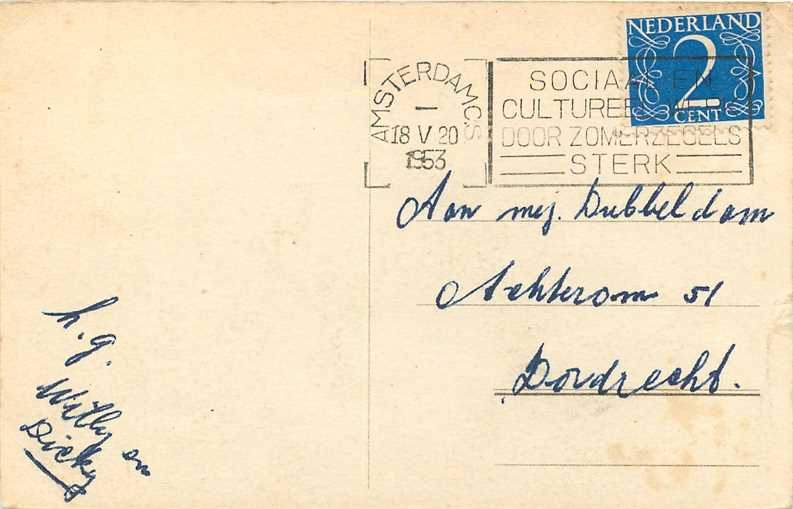 NEDERLAND
2
CENT
AMSTERDAM C.S
18 V 20
1953
SOCIAAL EN
CULTUREEL
DOOR ZOMERZEGELS
STERK
Aan mej. Dubbeldam
Achterom 51
Dordrecht.
h.g.
Willy en
Dicky